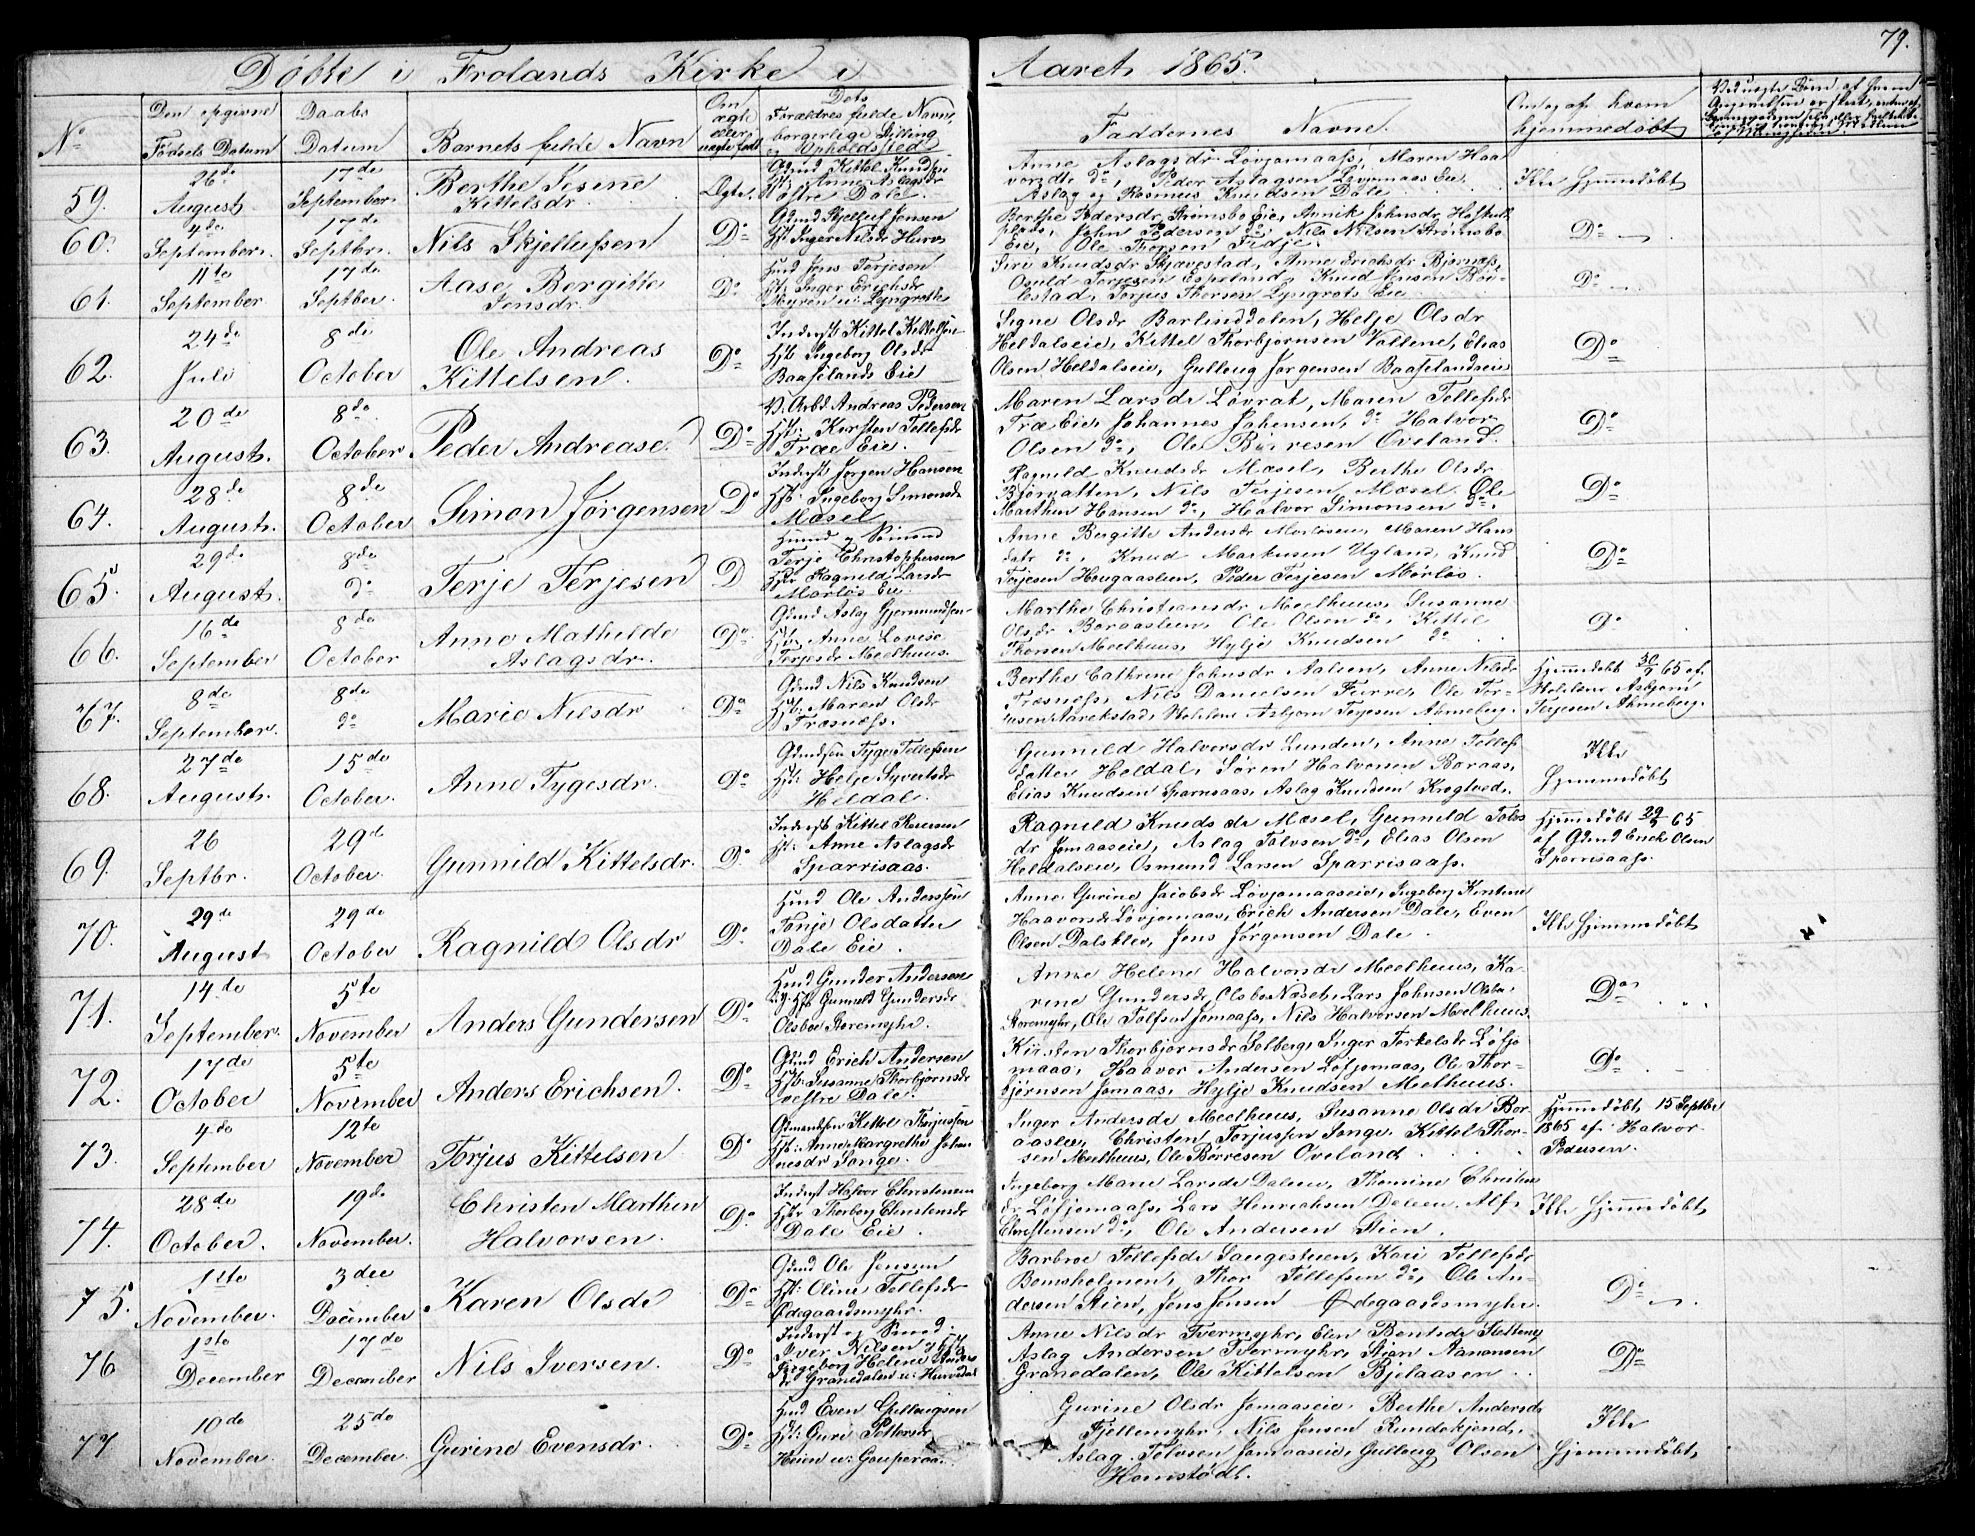 79.
Døbte i Frolands Kirke i Aaret 1865.
No
Den opgivne Fødsels Datum
Daabs Datum
Barnets fulde Navn
Om ægte eller uægte født
Dets Forældres fulde Navn, borgerlige Stilling og Opholdssted
Faddernes Navne.
Om og af hvem hjemmedøbt
59.
26de August
17de September
Berthe Kittelsdr.
Ægte.
Gmd Kittel Knudsen
Hst. Anne Aslagsdr
Vestre Dale.
Anne Aslagsdr Løvjomaass, Maren Haa
vorsdtr do, Peder Aslagsen Løvjomaas Eie
Aslag og Rasmus Knudsen Dale
Ikke Hjemmedøbt
60.
4de September.
17de Septbr.
Nils Skjellufsen
Do
Gmd Skjelluf Jensen
Hst Inger Nilsdr Hurv
Berthe Pedersdr, Strømsbo Eie, Annik Johnsdr
John Pedersen do, Nils Nilsen Strømsbo
Eie, Ole Thorsen Fidje.
Do
61.
11te September
17de Septber.
Aase Bergitte
Jensdr.
Do
Hmd Jens Terjesen
Hst. Inger Erichsdr
Myren u. Lyngroth
Siri Knudsdr Skjævestad, Anne Erichsdr Bjørnæss,
Osuld Terjesen Espeland, Knud Jensen Bøv-
lestad, Torjus Thorsen Lyngrots Eie
Do
62.
24de Juli
8de October
Ole Andreas
Kittelsen.
Do
Inderst Kittel Kittelsen
Hst Ingeborg Olsdr
Baaselands Eie
Signe Olsdr Barlinddalen, Helje Olsdr
Heldalseie, Kittel Thorbjørnsen Vallene, Elias
Olsen Heldalseie, Gulloug Jørgensen Baaselandseie
Do
63.
20de August.
8de October
Peder Andrease
Do
V. Arbd Andreas Pedersen
Hst. Kirsten Tellefsdr
Træ Eie.
Maren Larsdr Løvrak, Maren Tellefsdr
Træ Eie, Johannes Johensen, do Halvor
Olsen do, Ole Børresen Oveland.
Do
64.
28de August.
8de October
Simon Jørgensen
Do
Inderst Jørgen Hansen
Hst. Ingeborg Simonsdr
Mæsel
Ragnild Knudsdr Mæsel, Berthe Olsdr
Bjørvatten, Nils Terjesen Mæsel. Ole
Marthin Hansen do, Halvor Simonsen do.
Do
65.
29de August.
8de do
Terje Terjesen
D
Terje Christophersen
Ragnild Larsdr
Mørløs Eie
Anne Bergitte Andersdr Mørløsen, Maren Hans
datr do, Knud Markusen Ugland, Knud
Terjesen Hougaasleen, Peder Terjesen Mørløs.
Do
66.
16de September
8de October
Anne Mathilde
Aslagsdr.
Do
Gmd Aslag Gjermundsen
Hst. Anne Lovise
Terjesdr Meelhuus.
Marthe Christiansdr Meelhuus, Susanne
Olsdr Boraasleen, Ole Olsen do, Kittil
Thorsen Meelhuus, Hylje Knudsen do
Do
67.
8de September.
8de do
Marie Nilsdr
Do
Gmd Nils Knudsen
Hst. Maren Olsdr
Træsnæss.
Berthe Cathrine Johnsdr Aalien, Anne Nilsdr
Træsnæss, Nils Danielsen Furre, Ole Tor-
Asbjørn Terjesen Ahmeberg.
Hjemmedøbt 30/9 65 af
Asbjørn
Terjesen Ahmeberg.
68.
27de August.
15de October.
Anne Tygesdr.
Do
Tyge Tellefsen
Hst. Helje Syvertsdr
Heldal.
Gunnild Halvorsdr Lunden, Anne Tellefs
datter Heldal, Søren Halvorsen Boraas,
Elias Knudsen Sparrsaas, Aslag Knudsen Krogtved.
Ikke
Hjemmedøbt
69.
26 Septbr.
29de October.
Gunnild Kittelsdr.
Do
Inderst Kittel
Hst. Anne Aslagsdr
Sparrisaas.
Ragnild Knudsdr Mæsel, Gunnild Tolvs
dr Jomaaseie, Aslag Tolvsen do, Elias Olsen
Heldalseie, Osmund Larsen Sparrisaass.
Hjemmedøbt 29/9 65
af Gmd Erich Olsen
Sparrisaass.
70.
29de August
29de October
Ragnild Olsdr
Do
Hmd Ole Anderssen
Tonje Olsdatter
Dale Eie.
Anne Gurine Jacobsdr Løvjomaaseie, Ingeborg Kirstine
Haavorsdr Løvjomaas, Erich Andersen Dale, Even
Olsen Dalsklev, Jens Jørgensen Dale.
Ikke Hjemmedøbt
71.
14de September.
5te November
Anders Gundersen
Do
Hmd Gunder Andersen
Hst Gunnild Gundersdr
Olsboe Storemyhr.
Anne Helene Halvorsdr Meelhuus, Ka-
rine Gundersdr Olsbo Næset, Lars Johnsen Olsbo
Storemyhr, Ole Tolfsen Jomaass, Nils Halvorsen Meelhuus.
Do
72.
17de October
5te November
Anders Erichsen.
Do
Gmd Erich Andersen
Hst. Susanne Thorbjørnsdr
vestre Dale.
Kirsten Thorbjørnsdr Solberg, Inger Terkelsdr Løfjo
maas, Haavor Andersen Løfjomaas, Ole Thor-
bjørnsen Jomaas, Hylje Knudsen Meelhuus.
Do
73.
4de September
12te November
Torjus Kittelsen
Do
Kittel Torjussen
Hst. Anne Margrethe Johan
nesdr Songe.
Inger Andersdr Meelhuus, Susanne Olsdr Bor-
aaslee, Christen Torjussen Songe. Kittel Thor-
sen Meelhuus, Ole Børresen Oveland
Hjemmedøbt 15 Septbr
1865 af Halvor
Pedersen.
74.
28de October.
19de November.
Christen Marthin
Halvorsen.
Do
Inderst Halvor Christensen
Thorborg
Dale Eie.
Ingeborg Marie Larsdr Daleen, Thomine Christens
dr Løfjomaass, Lars Henrichsen Daleen. Alf
Christensen do, Ole Andersen Stien.
Ikke Hjemmedøbt
75.
1ste November.
3die December
Karen Olsdr
Do
Gmd Ole Jensen
Hst. Oline Tellefsdr
Ødegaardsmyhr.
Barbroe Tellefsdr Saugesteen, Kari Tellefsdr
Bomsholmen, Thor Tellefsen do, Ole An-
dersen Stien, Jens Jensen Ødegaardsmyhr.
Do
76
1ste December
17de December
Nils Iversen.
Do
Inderst og Smed.
Iver Nilsen
Ingeborg Helene Anders
dr Granedalen u. Hurvdal
Anne Nilsdr Tvermyhr, Elen Bentsdr Slettene
Aslag Andersen Tvermyhr, Stian Aanonsen
Granedalen, Ole Kittelsen Bjelaasen
Do
77
10de November.
25de December.
Gurine Evensdr.
Do
Hmd Even Gullougsen
Hst. Guri
Heien u.
Gurine Olsdr Jomaaseie, Berthe Andersdr
Fjellemyhr, Nils Jensen Rundekjend,
Aslag Tolvsen Jomaaseie, Gulloug Olsen
Homstødl.
Ikke
Hjemmedøbt